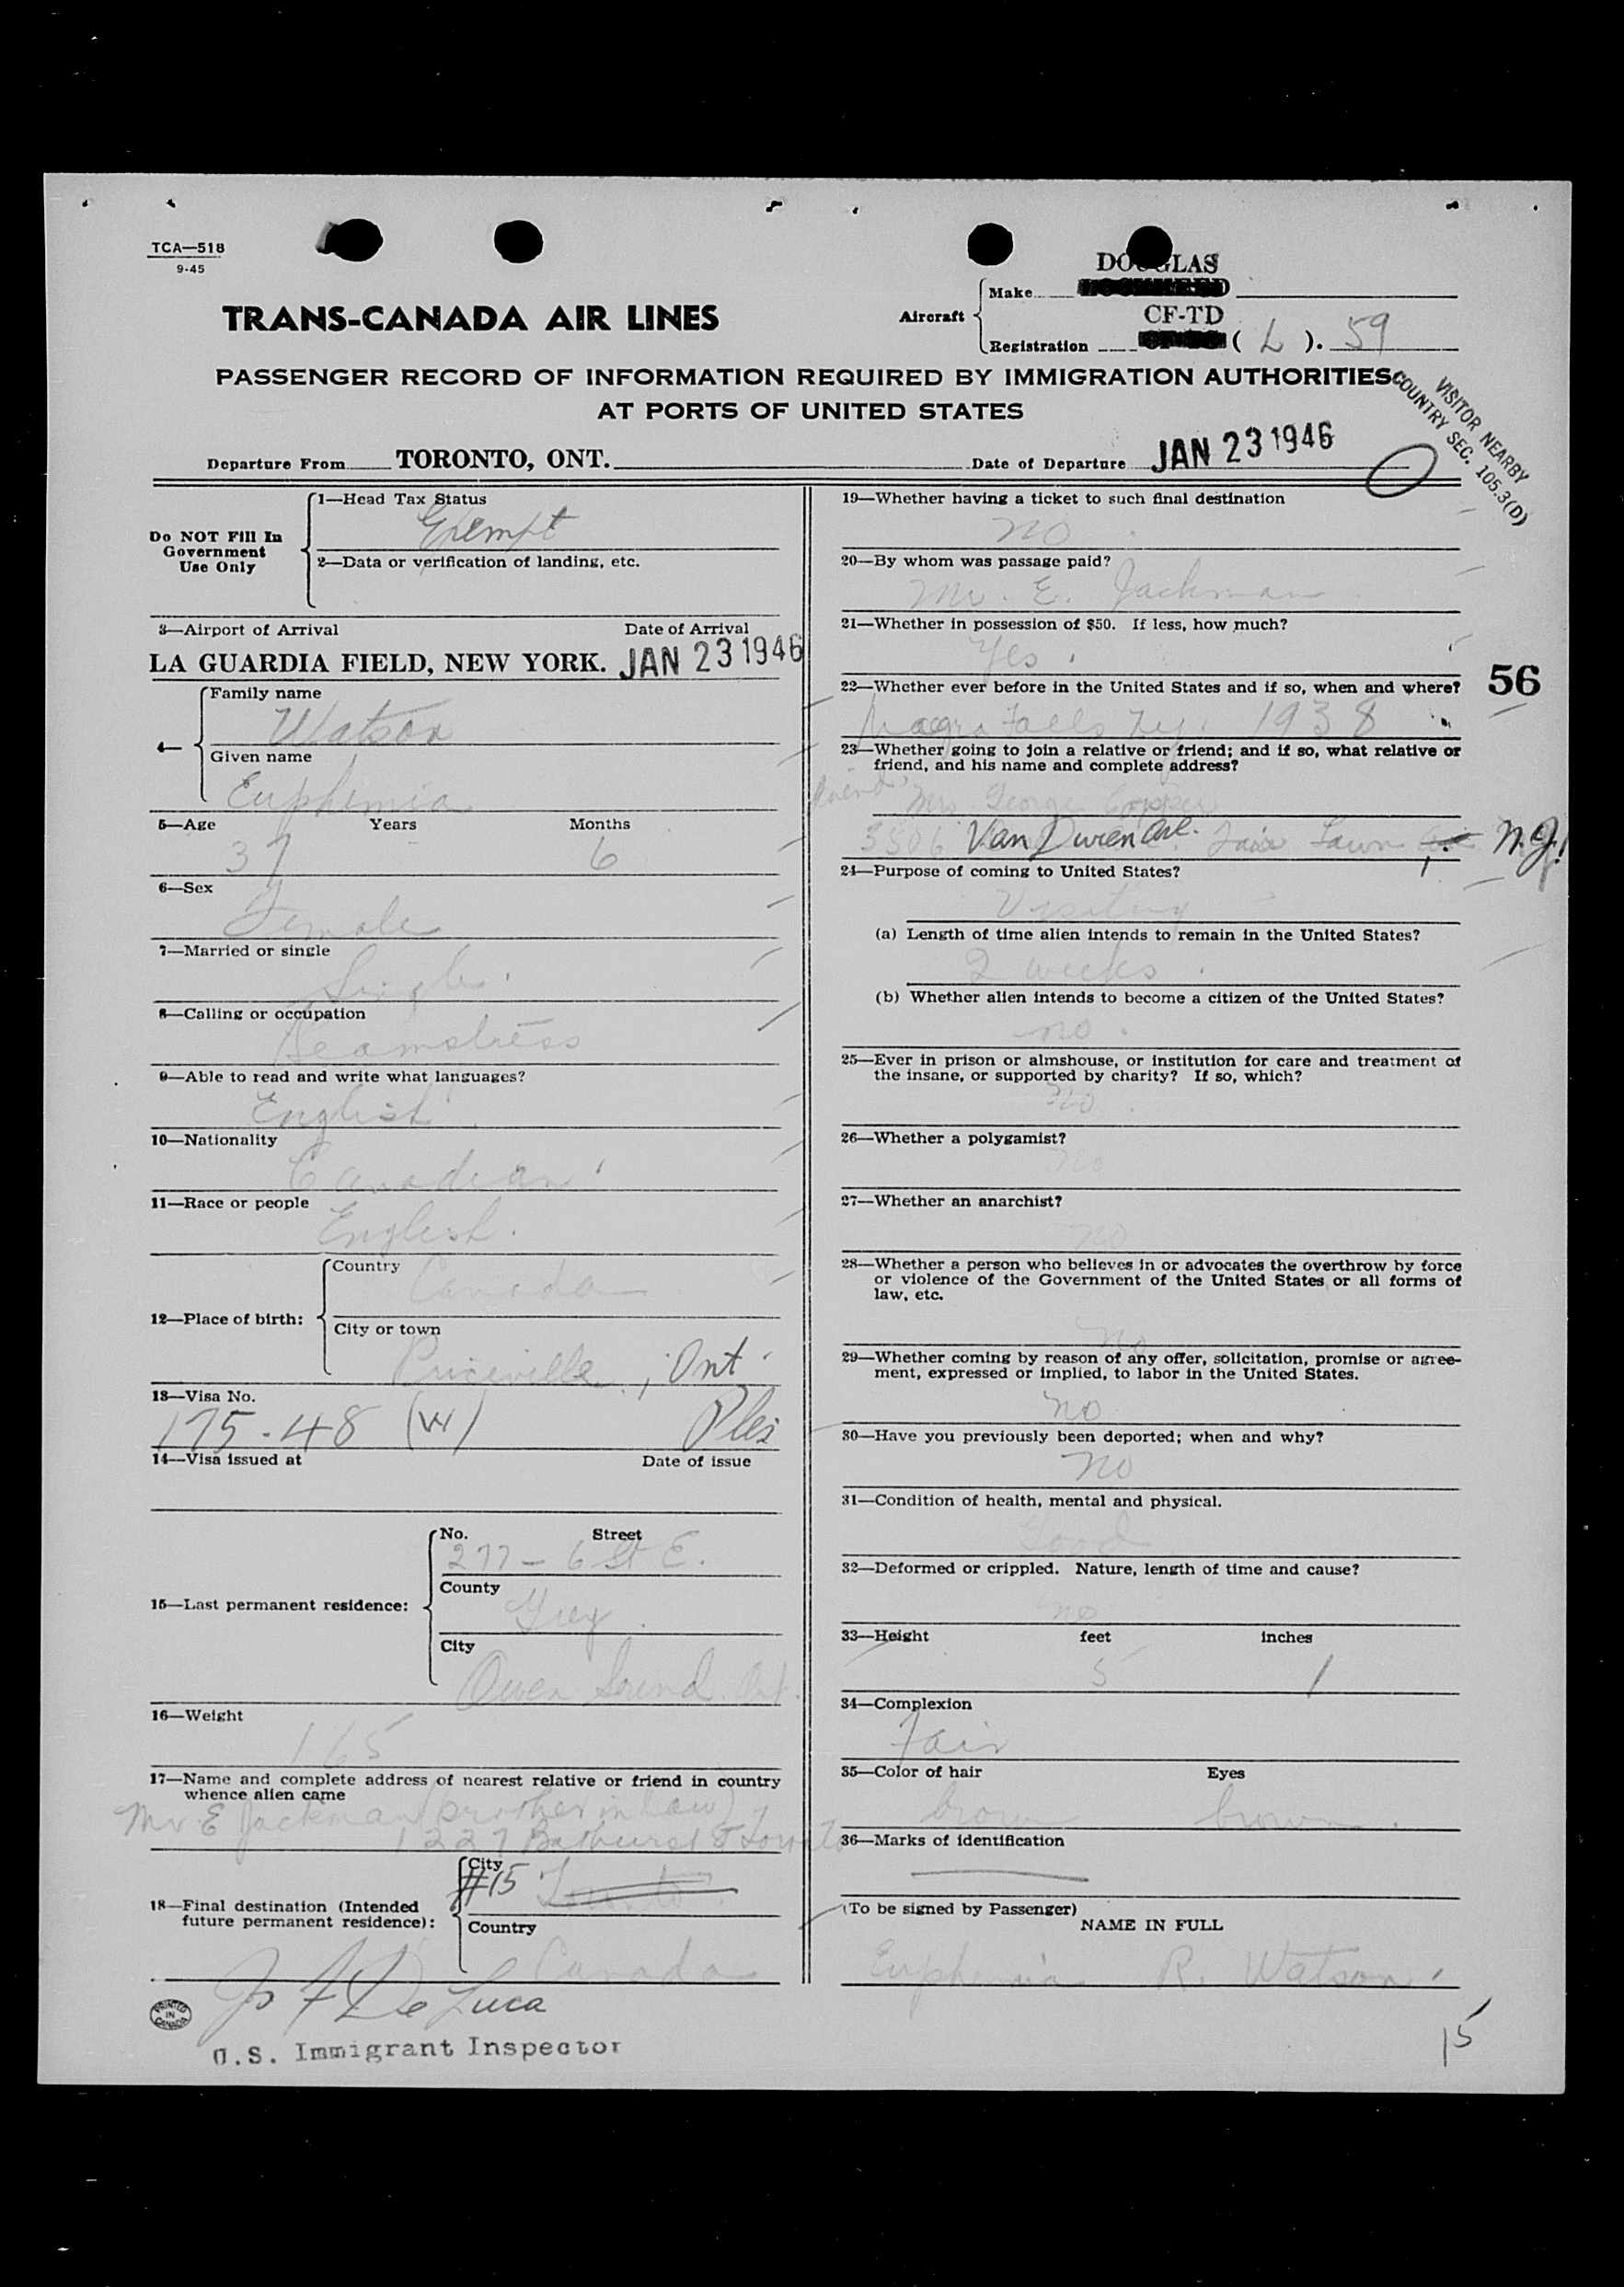 TCA—518
9-45
DOUGLAS
TRANS-CANADA AIR LINES
Aircraft
Make
CF-TD
Registration ( L ). 59
PASSENGER RECORD OF INFORMATION REQUIRED BY IMMIGRATION AUTHORITIES
AT PORTS OF UNITED STATES
VISITOR NEARBY
COUNTRY SEC. 105.3(D)
Departure From TORONTO, ONT. Date of Departure JAN 23 1946
Do NOT Fill In
Government
Use Only
1—Head Tax Status
Exempt
2—Data or verification of landing, etc.
3—Airport of Arrival Date of Arrival
LA GUARDIA FIELD, NEW YORK. JAN 23 1946
4—
Family name
Watson
Given name
Euphemia
5—Age Years Months
37 6
6—Sex
Female
7—Married or single
Single.
8—Calling or occupation
Seamstress
9—Able to read and write what languages?
English
10—Nationality
Canadian
11—Race or people
English.
12—Place of birth:
Country
Canada
City or town
Priceville, Ont
13—Visa No.
175-48 (W)
14—Visa issued at Date of issue
15—Last permanent residence:
No. Street
277 - 6 St E.
County
Grey
City
Owen Sound Ont.
16—Weight
165
17—Name and complete address of nearest relative or friend in country
whence alien came
Mr E Jackman (brother in law)
1227 Bathurst St Toronto
18—Final destination (Intended
future permanent residence):
City
#15
Country
Canada
De Luca
PRINTED
IN
CANADA
U.S. Immigrant Inspector
19—Whether having a ticket to such final destination
no
20—By whom was passage paid?
Mr. E. Jackman
21—Whether in possession of $50. If less, how much?
Yes.
56
22—Whether ever before in the United States and if so, when and where?
Falls N.Y. 1938
23—Whether going to join a relative or friend; and if so, what relative or
friend, and his name and complete address?
friend, Mrs George
3506 Van Duren Ave. Fair Lawn, N.J.
24—Purpose of coming to United States?
Visiting
(a) Length of time alien intends to remain in the United States?
2 weeks.
(b) Whether alien intends to become a citizen of the United States?
no.
25—Ever in prison or almshouse, or institution for care and treatment of
the insane, or supported by charity? If so, which?
no
26—Whether a polygamist?
no
27—Whether an anarchist?
no
28—Whether a person who believes in or advocates the overthrow by force
or violence of the Government of the United States or all forms of
law, etc.
no
29—Whether coming by reason of any offer, solicitation, promise or agree-
ment, expressed or implied, to labor in the United States.
no
30—Have you previously been deported; when and why?
no
31—Condition of health, mental and physical.
Good
32—Deformed or crippled. Nature, length of time and cause?
no
33—Height feet inches
5 1
34—Complexion
Fair
35—Color of hair Eyes
brown brown.
36—Marks of identification
(To be signed by Passenger)
NAME IN FULL
Euphemia R. Watson
15